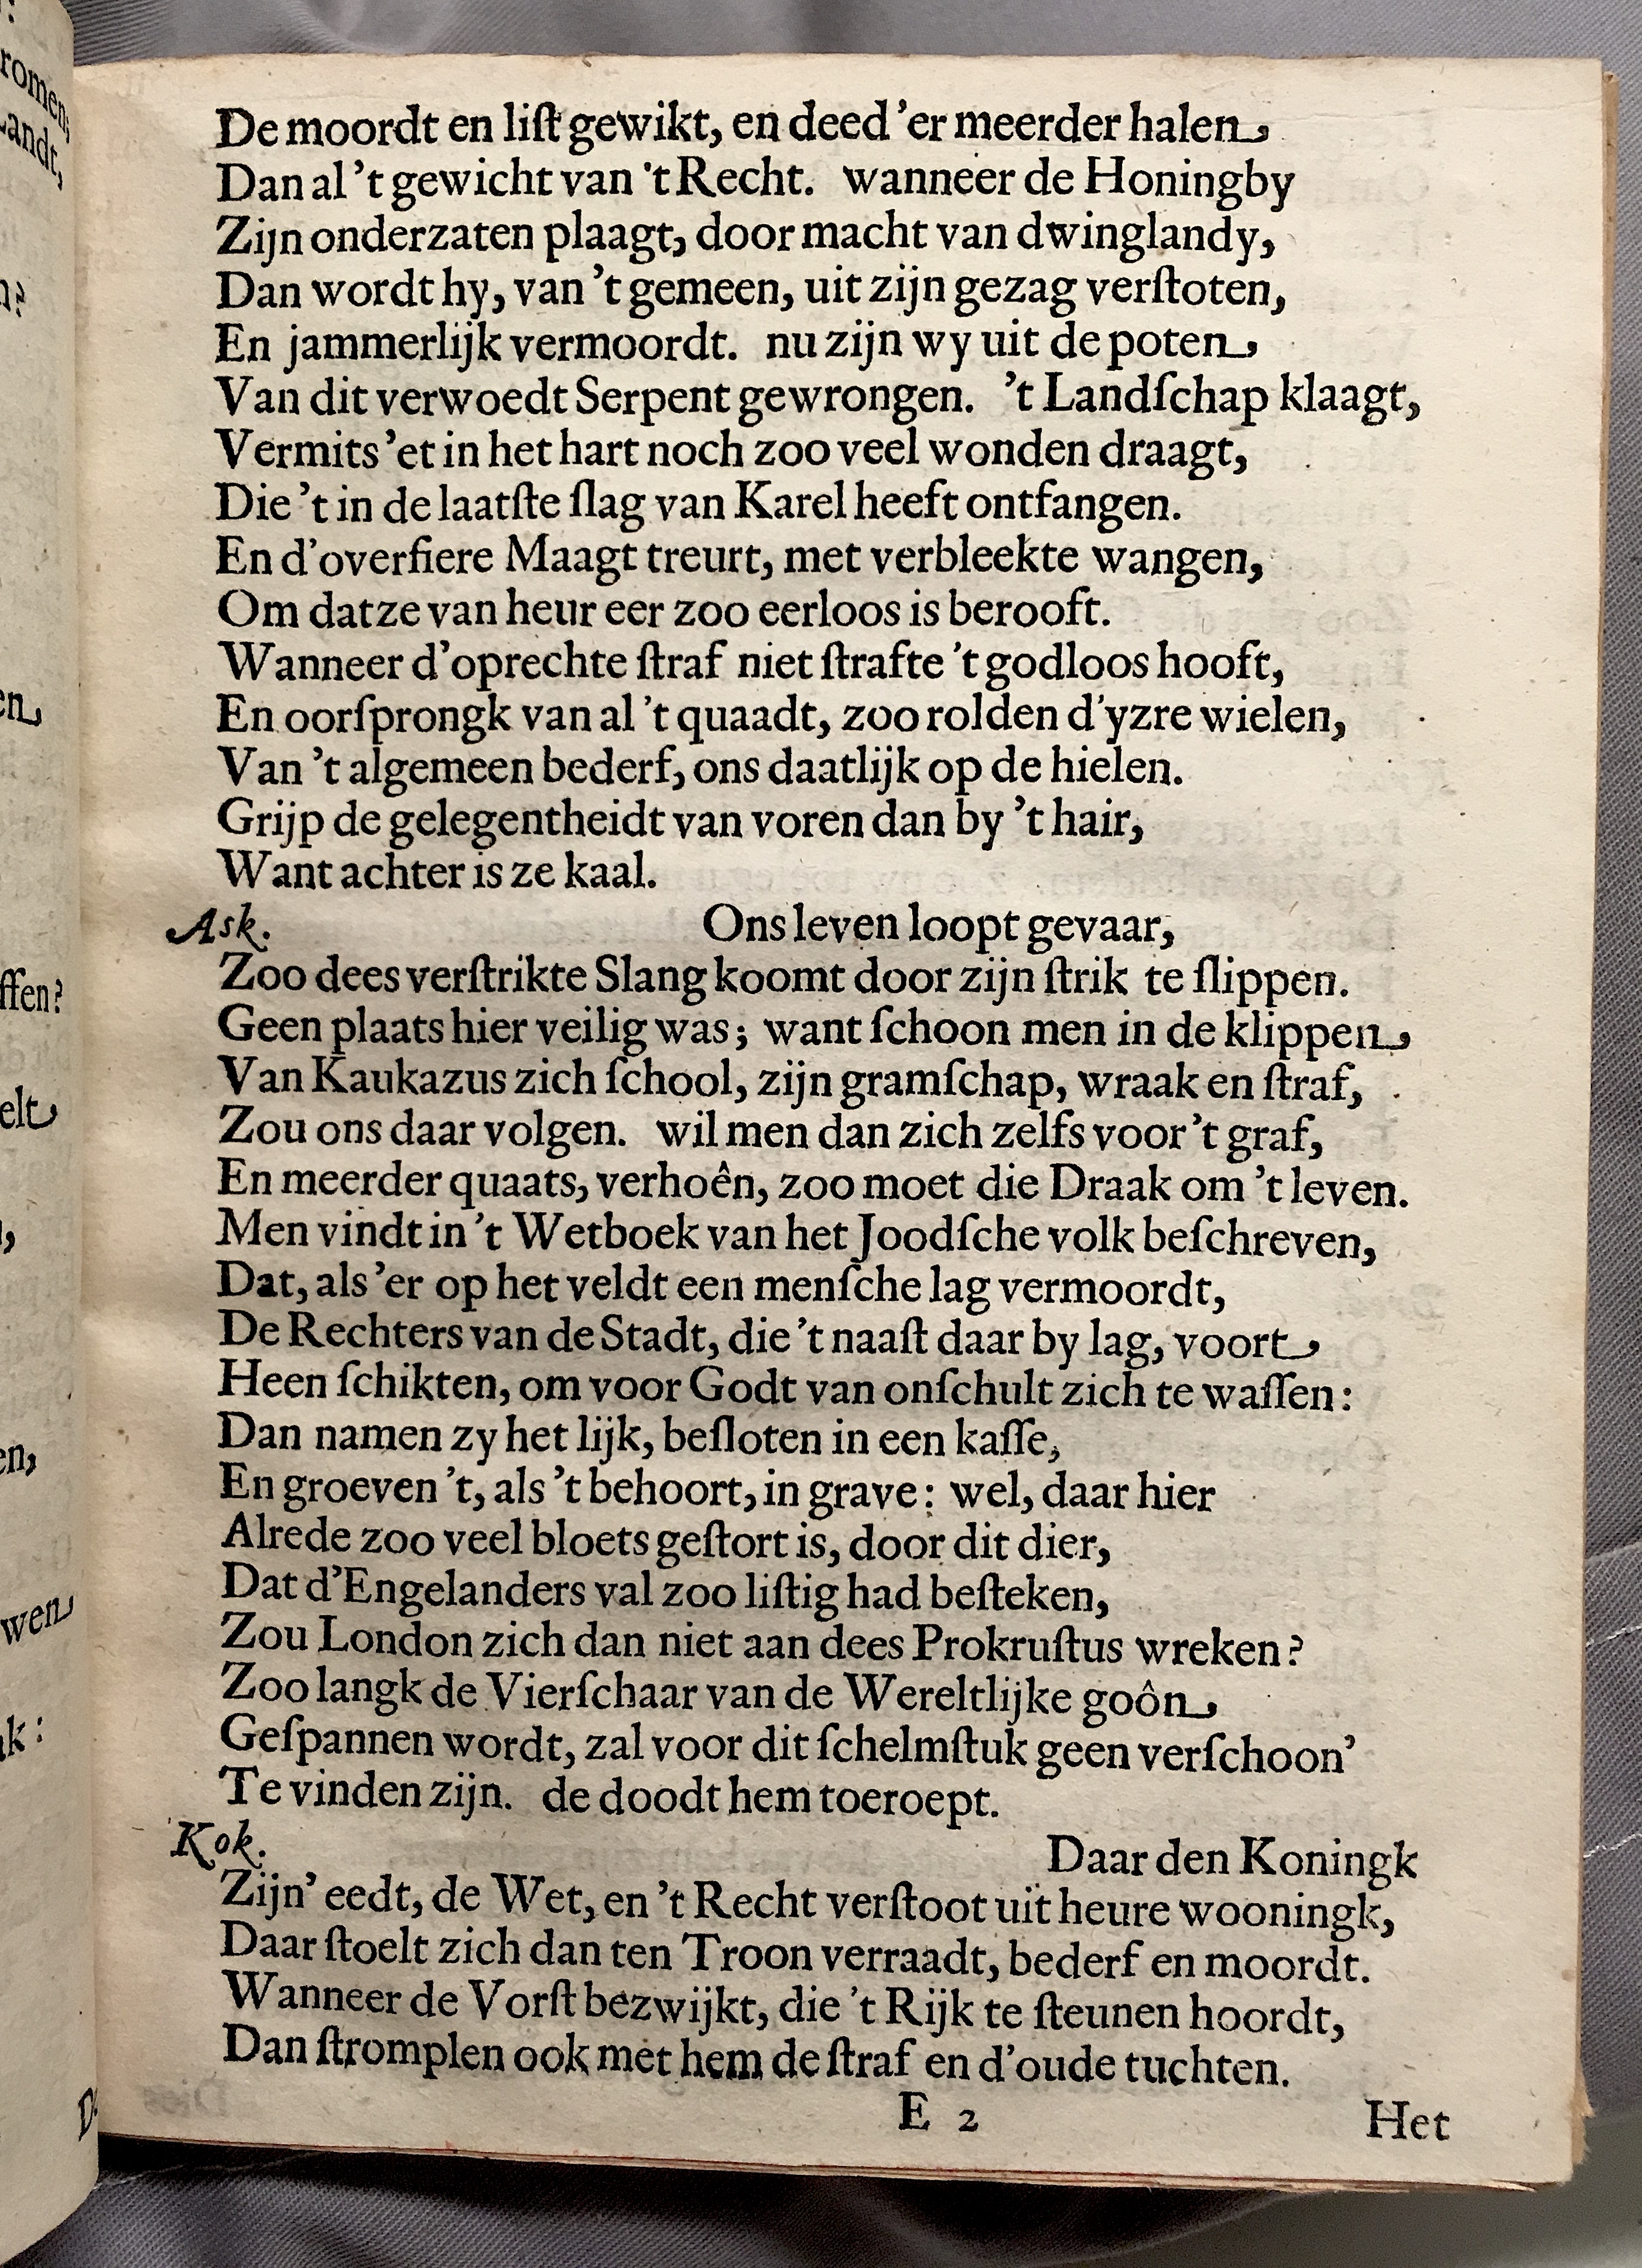 De moordt en liſt gewikt, en deed 'er meerder halen
Dan al 't gewicht van 't Recht. wanneer de Honingby
Zijn onderzaten plaagt, door macht van dwinglandy,
Dan wordt hy, van 't gemeen, uit zijn gezag verſtoten,
En jammerlijk vermoordt. nu zijn wy uit de poten
Van dit verwoedt Serpent gewrongen. 't Landſchap klaagt,
Vermits 'et in het hart noch zoo veel wonden draagt,
Die 't in de laatſte ſlag van Karel heeft ontfangen.
En d'overfiere Maagt treurt, met verbleekte wangen,
Om datze van heur eer zoo eerloos is berooft.
Wanneer d'oprechte ſtraf niet ſtrafte 't godloos hooft,
En oorſprongk van al 't quaadt, zoo rolden d'yzre wielen,
Van 't algemeen bederf, ons daatlijk op de hielen.
Grijp de gelegentheidt van voren dan by 't hair,
Want achter is ze kaal.
Ask. Ons leven loopt gevaar,
Zoo dees verſtrikte Slang koomt door zijn ſtrik te ſlippen.
Geen plaats hier veilig was; want ſchoon men in de klippen
Van Kaukazus zich ſchool, zijn gramſchap, wraak en ſtraf,
Zou ons daar volgen. wil men dan zich zelfs voor 't graf,
En meerder quaats, verhoên, zoo moet die Draak om 't leven.
Men vindt in 't Wetboek van het Joodſche volk beſchreven,
Dat, als 'er op het veldt een menſche lag vermoordt,
De Rechters van de Stadt, die 't naaſt daar by lag, voort
Heen ſchikten, om voor Godt van onſchult zich te waſſen:
Dan namen zy het lijk, beſloten in een kaſſe,
En groeven 't, als 't behoort, in grave: wel, daar hier
Alrede zoo veel bloets geſtort is, door dit dier,
Dat d'Engelanders val zoo liſtig had beſteken,
Zou London zich dan niet aan dees Prokruſtus wreken?
Zoo langk de Vierſchaar van de Wereltlijke goôn
Geſpannen wordt, zal voor dit ſchelmſtuk geen verſchoon'
Te vinden zijn. de doodt hem toeroept.
Kok. Daar den Koningk
Zijn' eedt, de Wet, en 't Recht verſtoot uit heure wooningk,
Daar ſtoelt zich dan ten Troon verraadt, bederf en moordt.
Wanneer de Vorſt bezwijkt, die 't Rijk te ſteunen hoordt,
Dan ſtromplen ook met hem de ſtraf en d'oude tuchten.
E 2 Het